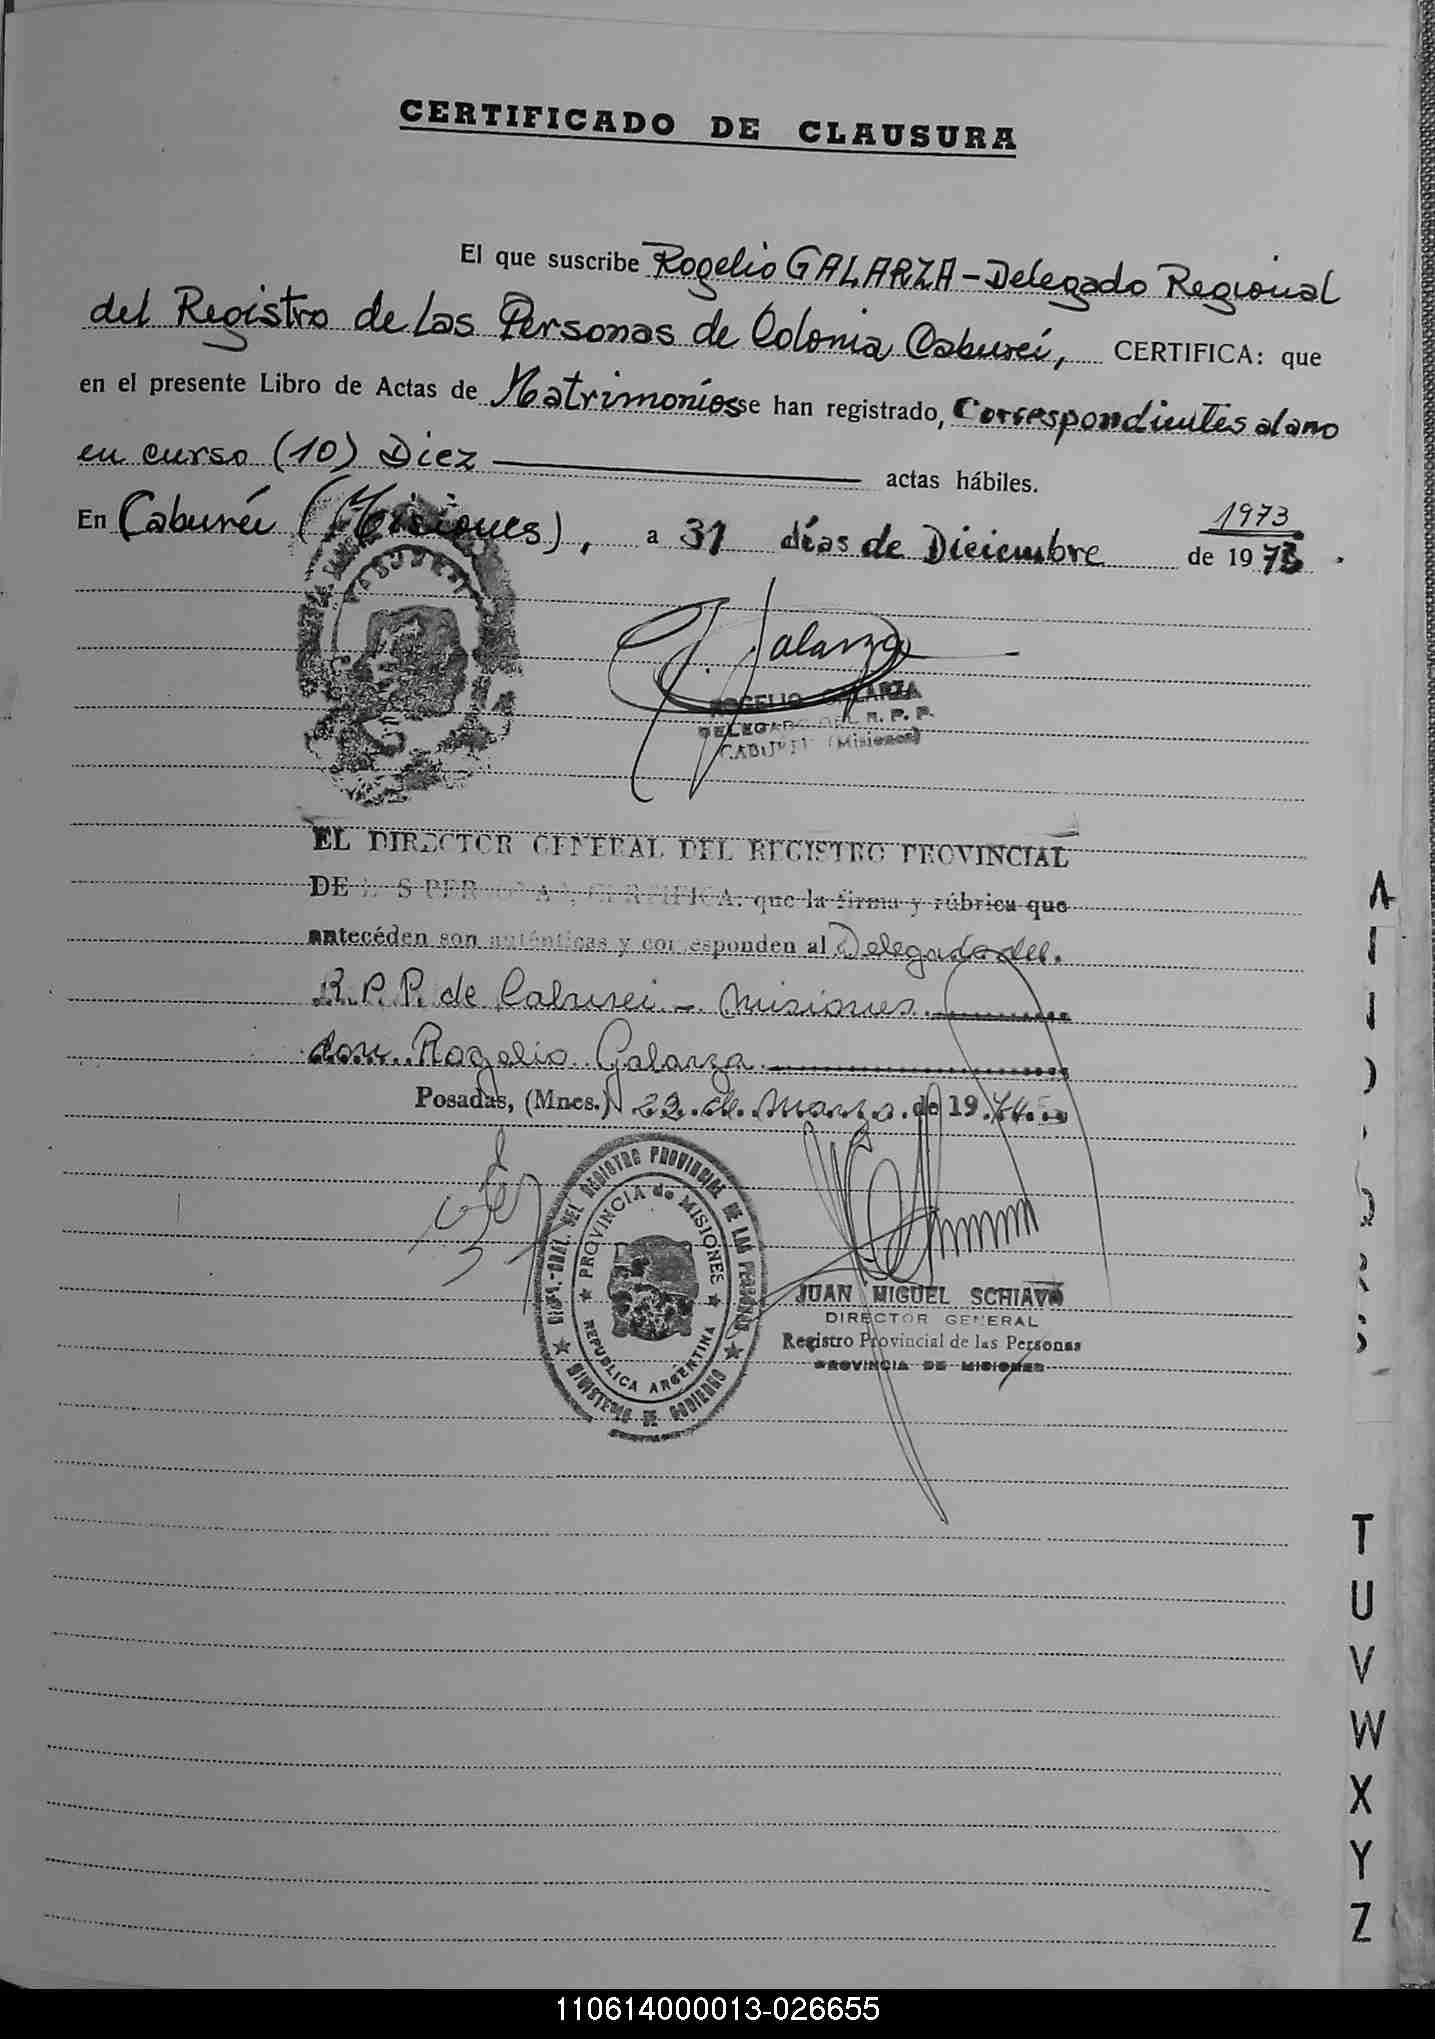 CERTIFICADO DE CLAUSURA
El que suscribe Rogelio GALARZA - Delegado Regional
del Registro de las Personas de Colonia Caburei, CERTIFICA: que
en el presente Libro de Actas de Matrimonios se han registrado, Correspondientes al ano
en curso (10) Diez actas hábiles.
1973
En Caburéi (Misiones), a 31 días de Diciembre de 1973.
Galarza
ROGELIO GALARZA
DELEGADO DEL R. P. P.
CABUREI (Misiones)
EL DIRECTOR GENERAL DEL REGISTRO PROVINCIAL
DE LAS PERSONAS, CERTIFICA: que la firma y rúbrica que
antecéden son auténticas y corresponden al Delegado del
R. P. P. de Caburei - Misiones.
don Rogelio Galarza
Posadas, (Mnes.) 22 de Marzo de 1974
DIREC. GRAL. DEL REGISTRO PROVINCIAL DE LAS PERSONAS
PROVINCIA de MISIONES
REPUBLICA ARGENTINA
MINISTERIO DE GOBIERNO
JUAN MIGUEL SCHIAVO
DIRECTOR GENERAL
Registro Provincial de las Personas
PROVINCIA DE MISIONES
T
U
V
W
X
Y
Z
110614000013-026655